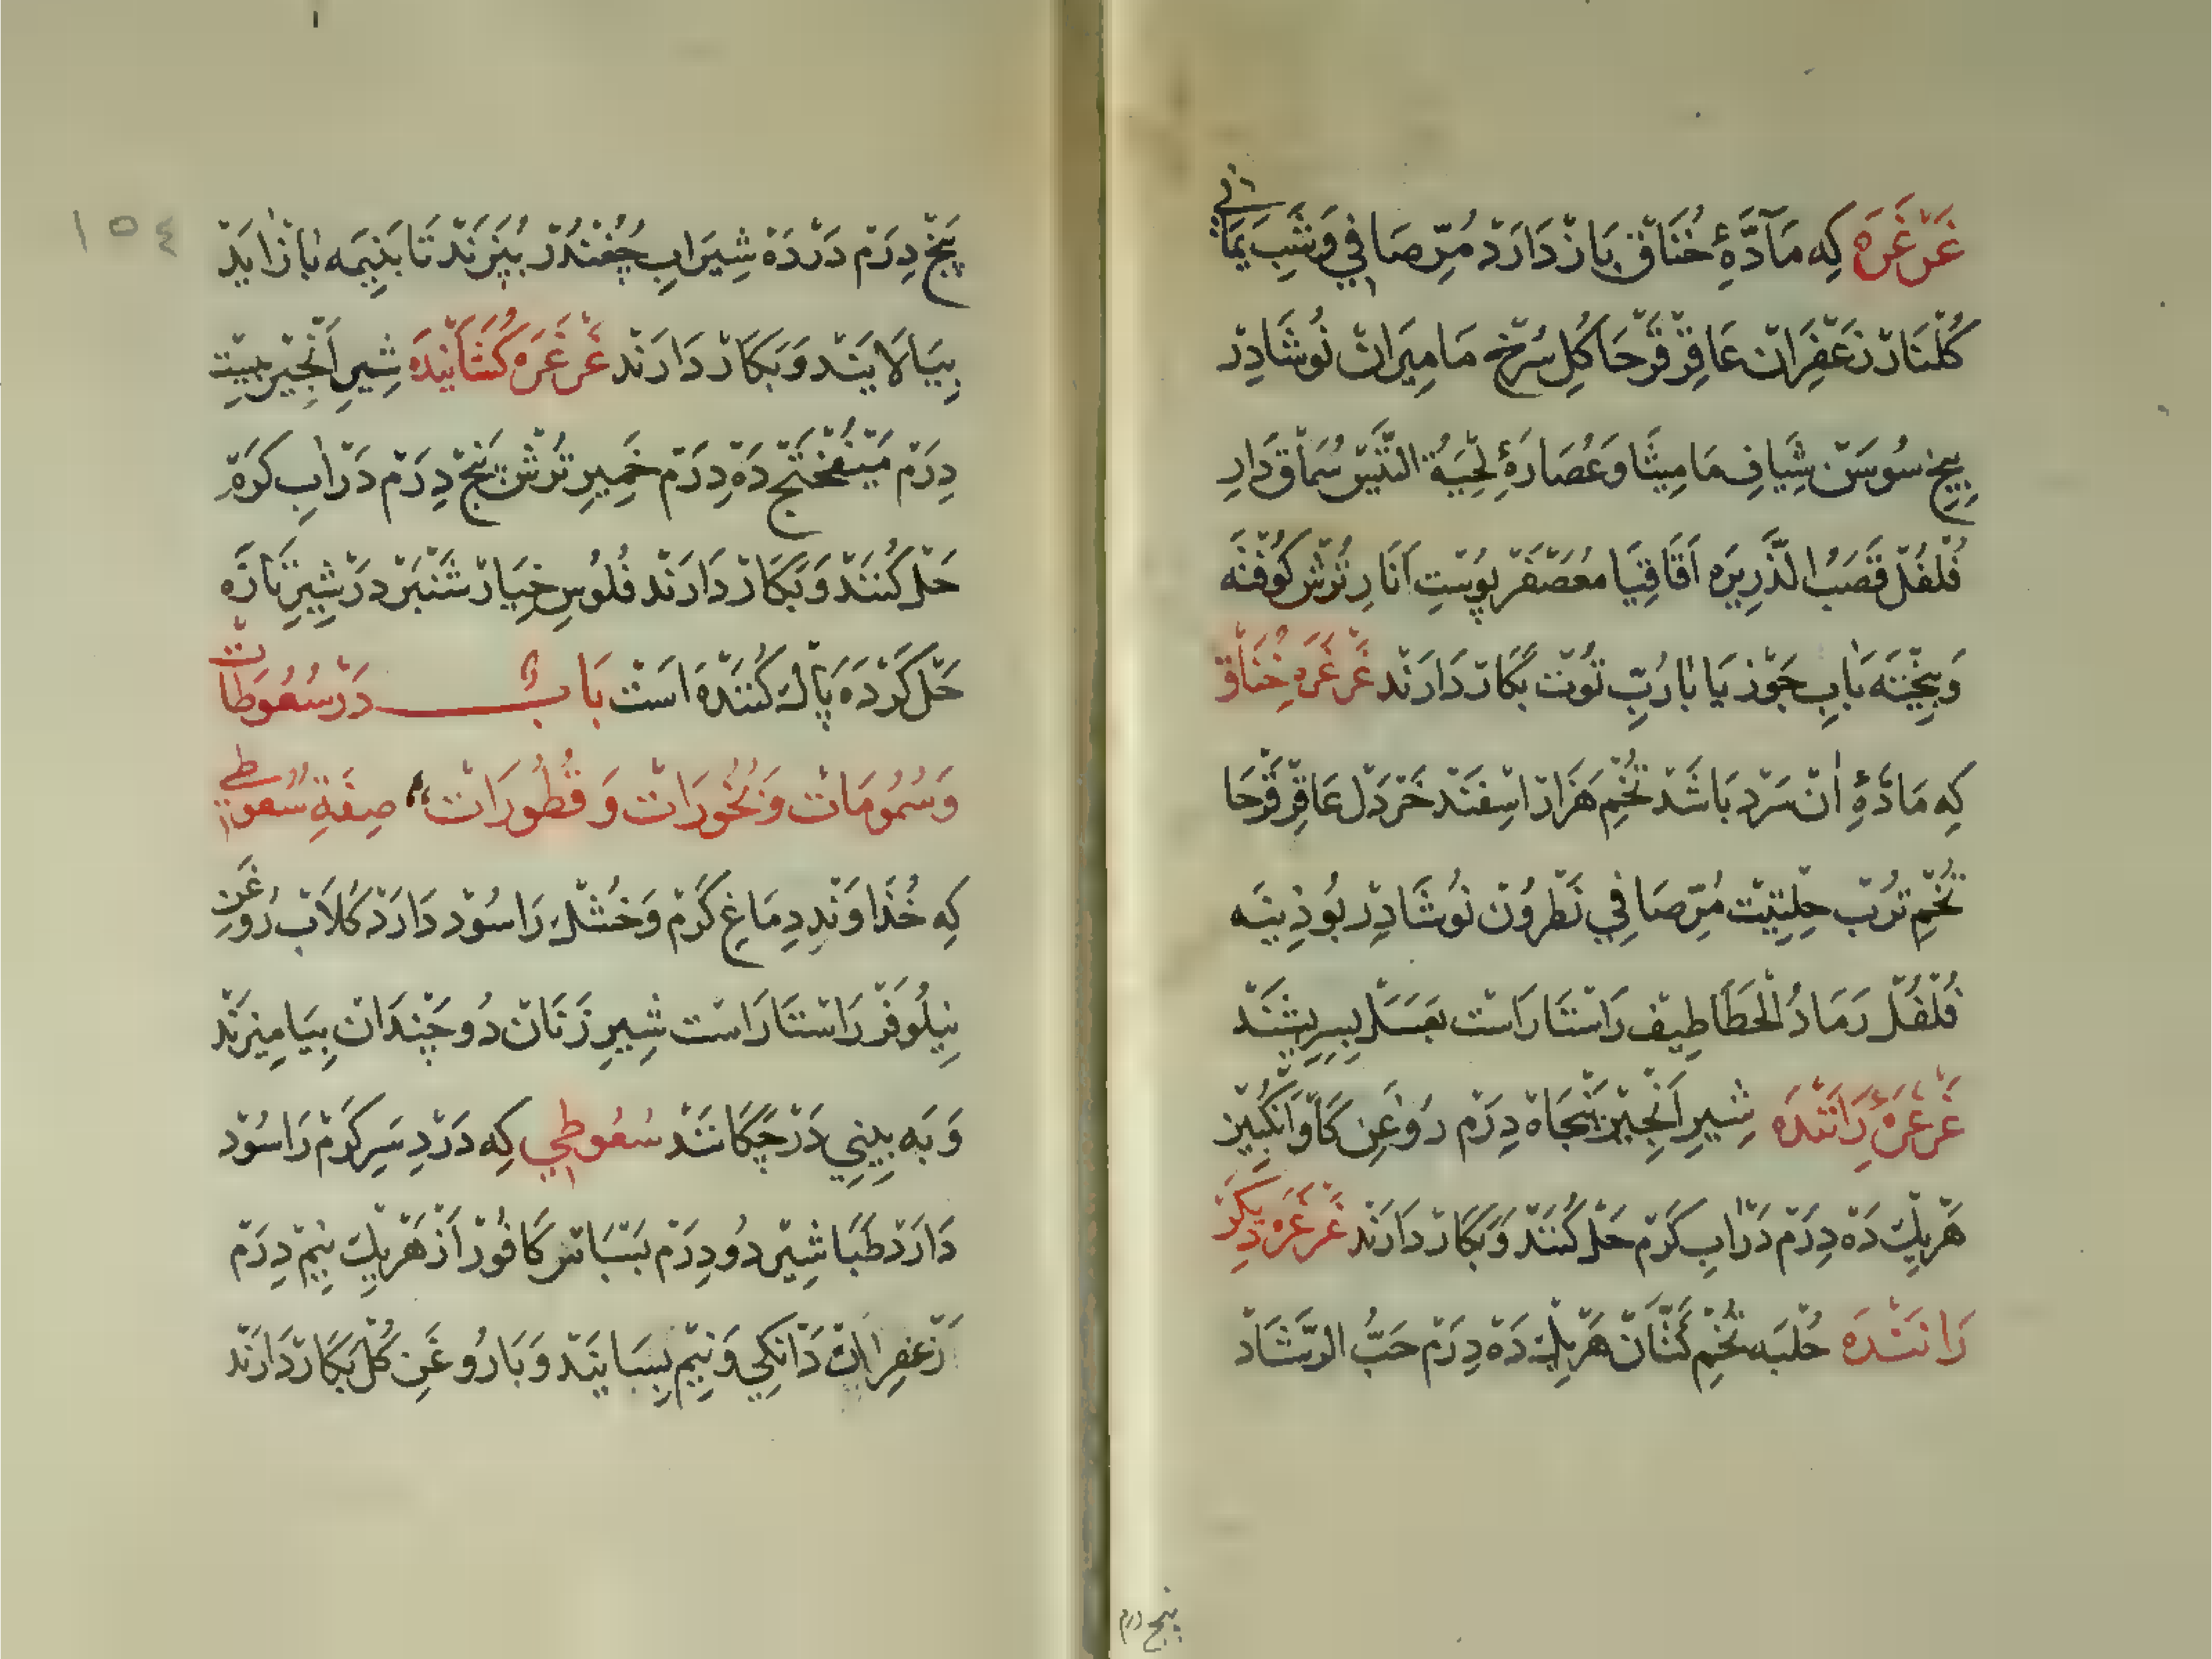 غَرْغَرَهْ كِه مَآدَّهِٔ خُنَاقْ بَازْ دَارَدْ مُرِّ صَافِي وَشَبِ يَمَانِي
كُلْنَارْ زَعْفِرَانْ عَاقِرْ قَرْحَا كُلِ سُرْخْ مَامِيرَانْ نُوشَادِرْ
بِيخِ سُوسَنْ شِيَافِ مَامِيثَا وَعُصَارَهِٔ لِحْيَةُ التَّيْسْ سُمَاقْ دَارِ
فُلْفُلْ قَصَبُ الذَّرِيرَه اَقَاقِيَا مُعَصْفَرْ پُوسْتِ اَنَارِ تُرْشْ كُوفْتَه
وَبِيخْتَه بَابِ جَوْز يَا بَارُبِّ تُوتْ بَكَارْ دَارَنْد غَرْغَرَهِ خُنَاقْ
كِه مَادَّهِٔ اٰنْ سَرْد بَاشَدْ تُخْمِ هَزَارْ اسِفَنْد خَرْدَل عَاقِرْقَرْحَا
تُخْمِ تُرُبْ حِلْتِيتْ مُرِّ صَافِي نَطْرُونْ نُوشَادِرْ بُوذِينَه
فُلْفُلْ رَمَادُ الْخَطَاطِيفْ رَاسْتَارَاسْت بَعَسَلْ بِسِرِيشَنْدْ
غَرْغَرَهِٔ رَانَنْدَه شِيرِ اَنْجِيرْ پَنْجَاهْ دِرَمْ رُوغَنِ كَاوْ اَنْكُبِينْ
هَرْيِكْ دَهْ دِرَمْ دَرْ اٰبِ كَرْمْ حَلْ كُنَنْدْ وَبَكَارْ دَارَنْد غَرْغَرَه دِيكَرْ
رَانَنْدَه حُلْبَه تُخْمِ كَتَّانْ هَرْيِكْ دَهْ دِرَمْ حَبُّ الرَّشَادْ
پنج درم
١٥٤
پَنْجْ دِرَمْ دَرْ دَهْ شِيرَابِ چُغُنْدُرْ بُپَزَنْد تَا بَنِيمَه بَازْ اٰيَدْ
بِپَالَايَنْد وَبَكَارْ دَارَنْد غَرْغَرَه كُشَايَنْدَه شِيرِ اَنْجِيرْ بِيسْت
دِرَمْ مَيْفُخْتَجْ دَهْ دِرَمْ خَمِيرِ تُرُشْ پَنْجْ دِرَمْ دَرْ اٰبِ كَرْمْ
حَلْ كُنَنْدْ وَبَكَارْ دَارَنْد فُلُوسِ خِيَارْ شَنْبَرْ دَرْ شِيرِ تَازَه
حَلْ كَرْدَه پَاكْ كُنَنْدَه اسْت بَابْ دَرْ سُعُوطَاتْ
وَسُمُومَاتْ وَبُخُورَاتْ وَقُطُورَاتْ صِفَةِ سُعُوطِي
كِه خُدَاوَنْدِ دِمَاغِ كَرْمْ وَخُشْك رَا سُوْد دَارَدْ كُلَابْ رُوغَنِ
نِيلُوفَرْ رَاسْتَارَاسْت شِيرِ زَنَانْ دُو چَنْدَانْ بِيَامِيزَنْد
وَبَه بِينِي دَرْ چَكَانَنْد سُعُوطِي كِه دَرْدِ سَرِ كَرْمْ رَا سُوْد
دَارَدْ طَبَاشِيرْ دُو دِرَمْ بَسْبَاسَ كَافُورْ اَزْ هَرْيِكْ نِيمْ دِرَمْ
زَعْفِرَانْ دَانْكِي وَنِيمْ بِسَايَنْد وَبَا رُوغَنِ كُلْ بَكَارْ دَارَنْد